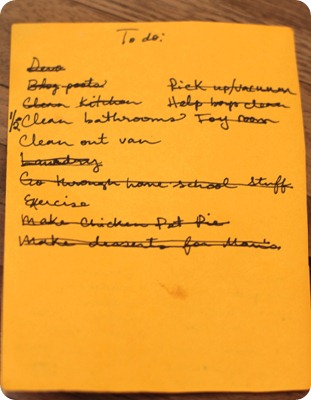 To do:
Devo
Blog posts
Clean Kitchen
1/2 Clean bathrooms
Clean out van
Laundry
Go through home school stuff
Exercise
Make Chicken Pot Pie
Make desserts for Mom's
Pick up/vacuum
Help boys clean
Toy room